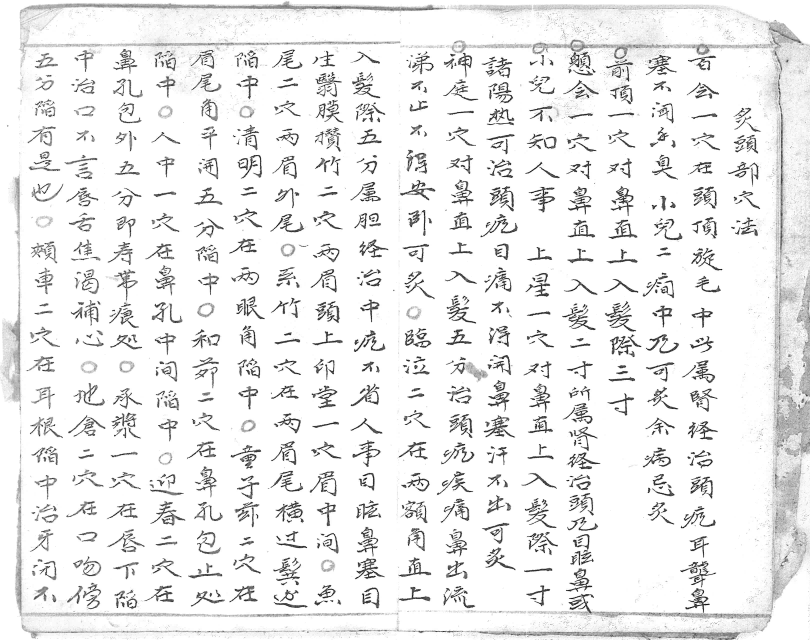 炙頭部穴法
○百会一穴在頭頂旋毛中此属腎経治頭疙耳聾鼻
塞不闻臭 小兒二癎中乃可炙余病忌炙
○前頂一穴对鼻直上入髪際三寸
○顖会一穴对鼻直上入髪二寸所属腎経治頭乃目眩鼻或
○小兒不知人事 上星一穴对鼻直上入髪際一寸
諸陽热可治頭疙目痛不淂闲鼻塞汗不出可炙
○神庭一穴对鼻直上入髪五分治頭疙疾痛鼻出流
涕不止不淂安卧可炙○臨泣二穴在两額角直上
入髪際五分属胆経治中疙不省人事目眩鼻塞目
生翳膜攅竹二穴两眉頭上印堂一穴眉中间○魚
尾二穴两眉外尾○糸竹二穴在两眉尾横过鬓边
陷中○清明二穴在两眼角陷中○童子茆二穴在
眉尾角平闲五分陷中○和茆二穴在鼻孔包上处
陷中○人中一穴在鼻孔中间陷中○迎春二穴在
鼻孔包外五分即寿帯痕处○承漿一穴在唇下陷
中治口不言唇舌焦渇補心○地倉二穴在口吻傍
五分陷有是也○頬車二穴在耳根陷中治牙闭不